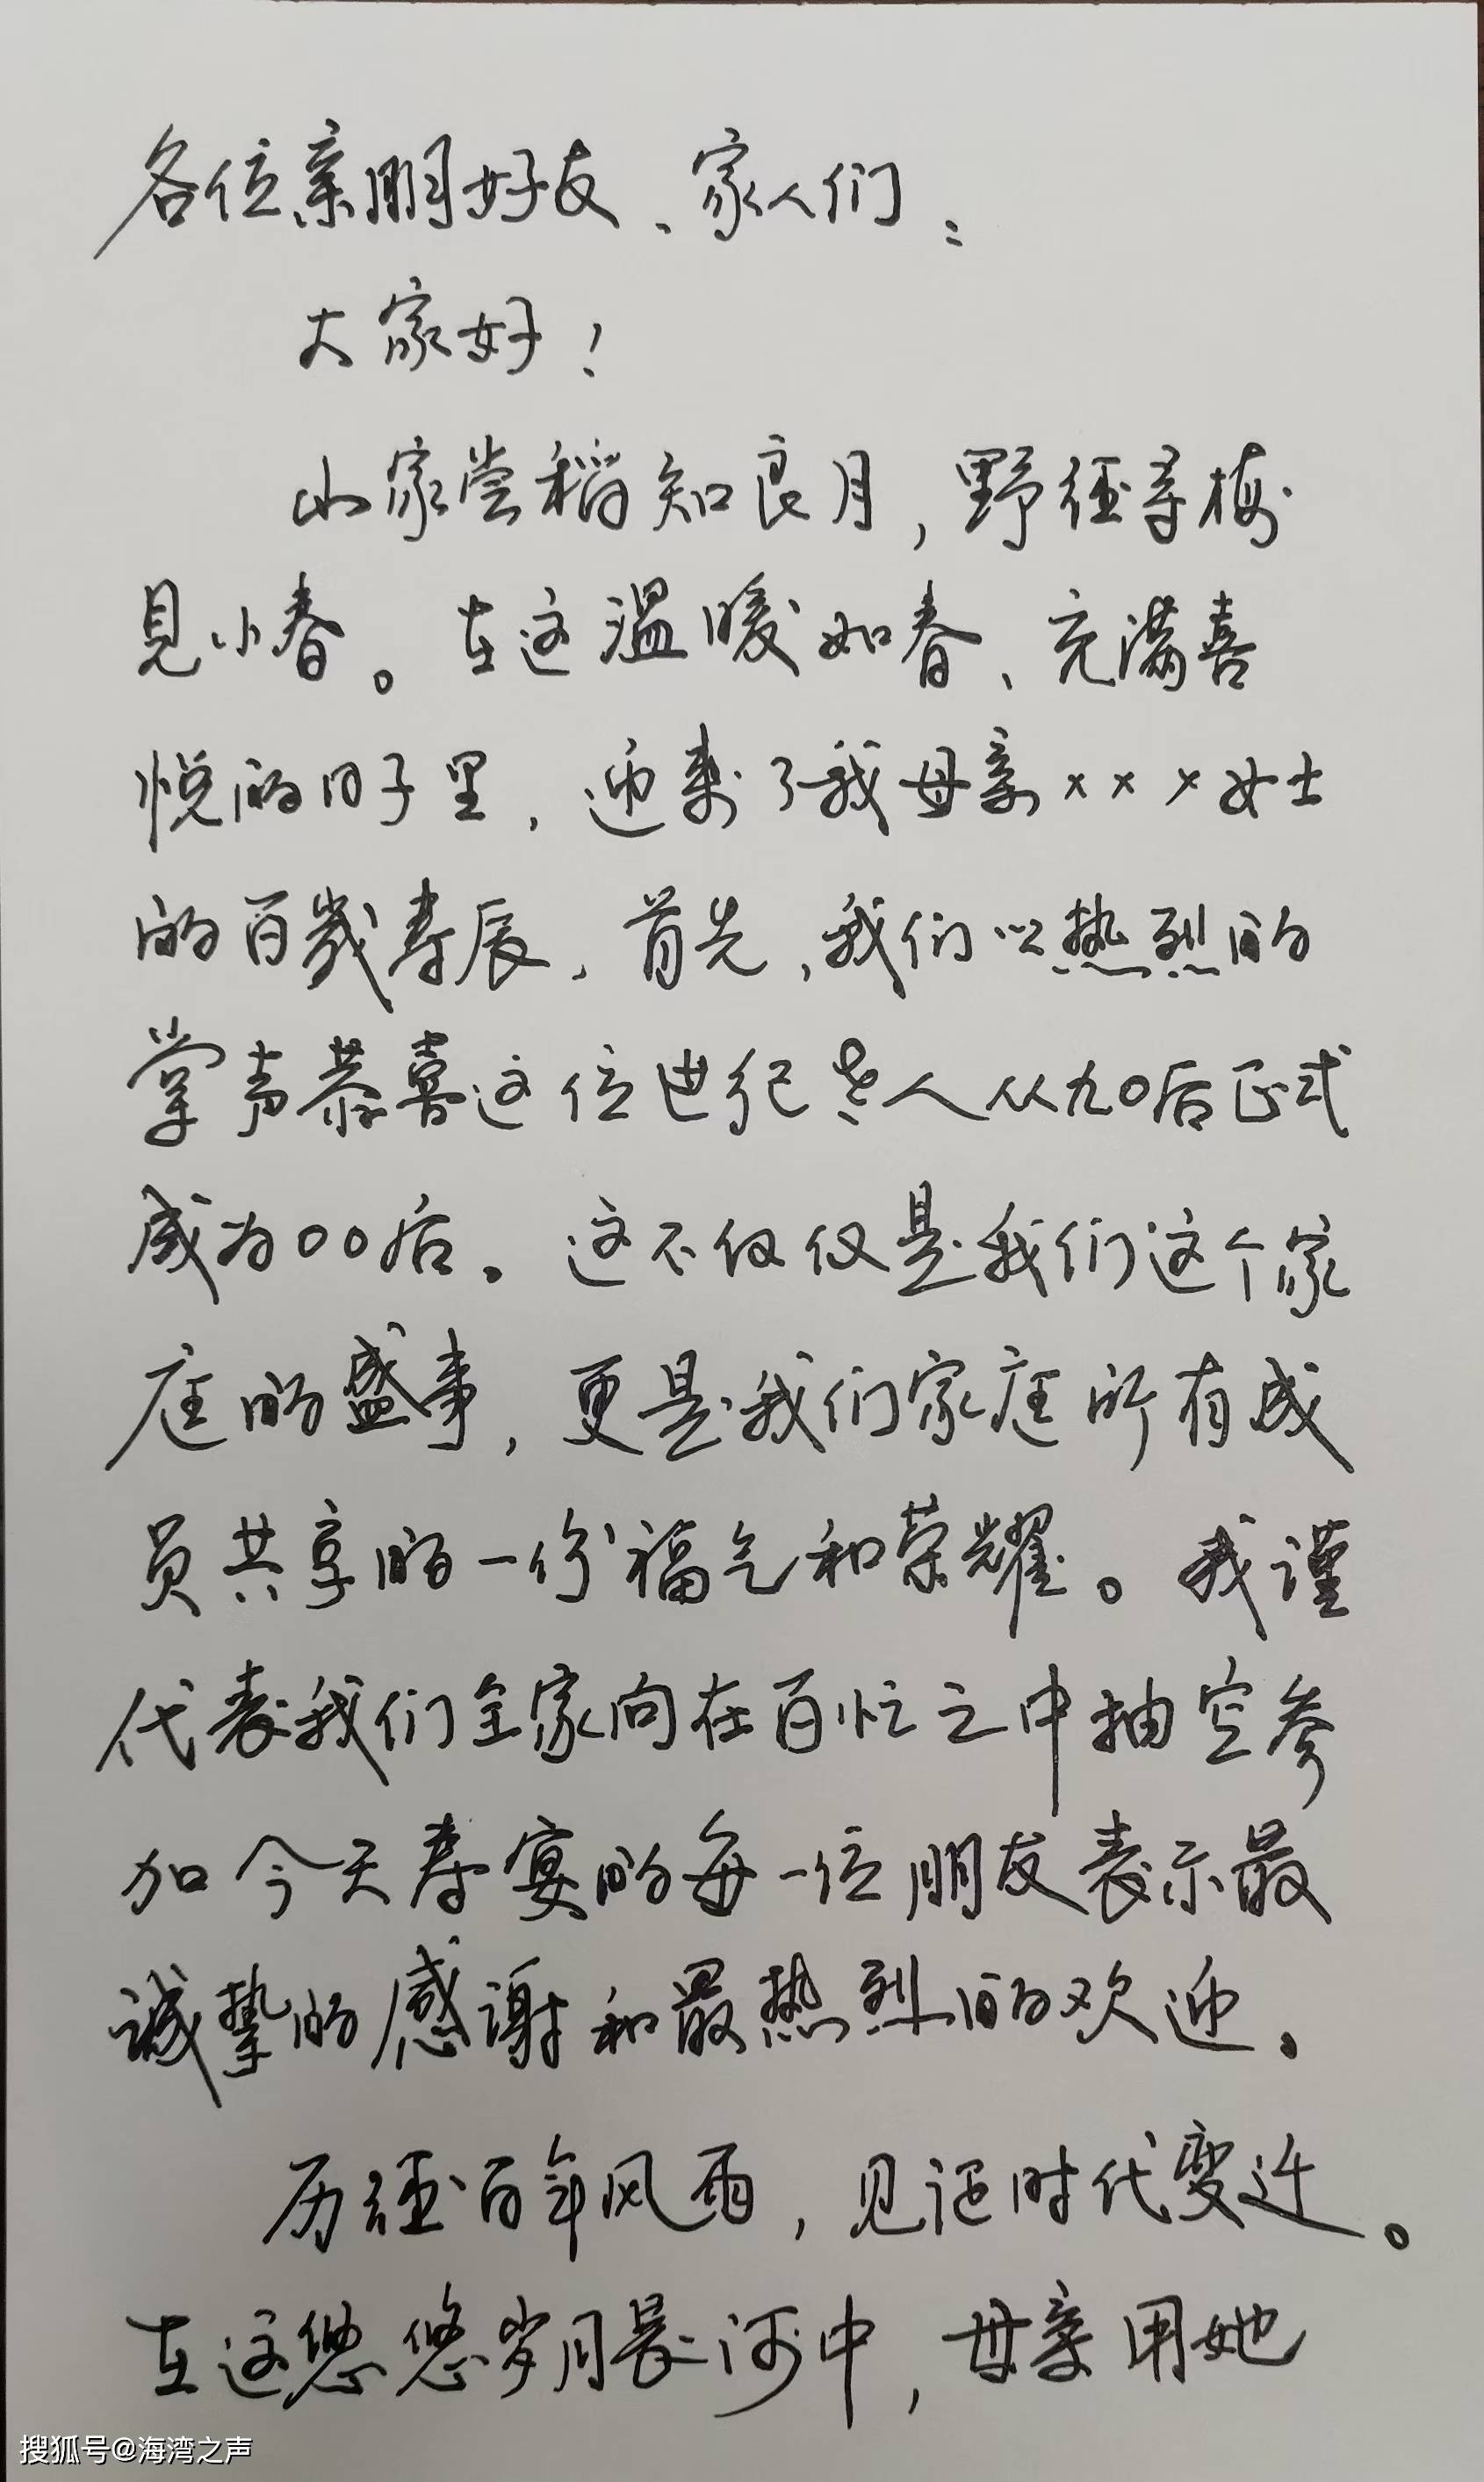 各位亲朋好友、家人们：
大家好！
山家尝稻知良月，野径寻梅
見小春。在这温暖如春、充满喜
悦的日子里，迎来了我母亲×××女士
的百歲寿辰，首先，我们以热烈的
掌声恭喜这位世纪老人从九0后正式
成为00后。这不仅仅是我们这个家
庭的盛事，更是我们家庭所有成
员共享的一份福气和荣耀。我谨
代表我们全家向在百忙之中抽空参
加今天寿宴的每一位朋友表示最
诚挚的感谢和最热烈的欢迎。
历经百年风雨，见证时代变迁。
在这悠悠岁月长河中，母亲用她
搜狐号@海湾之声